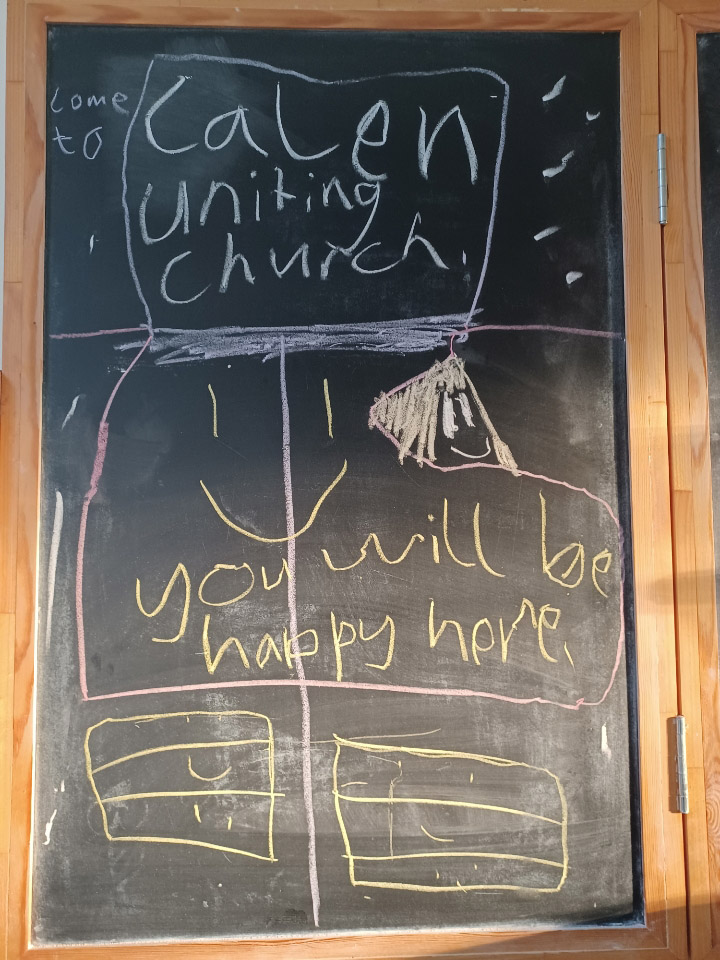 come
to
Calen
uniting
church.
you will be
happy here.